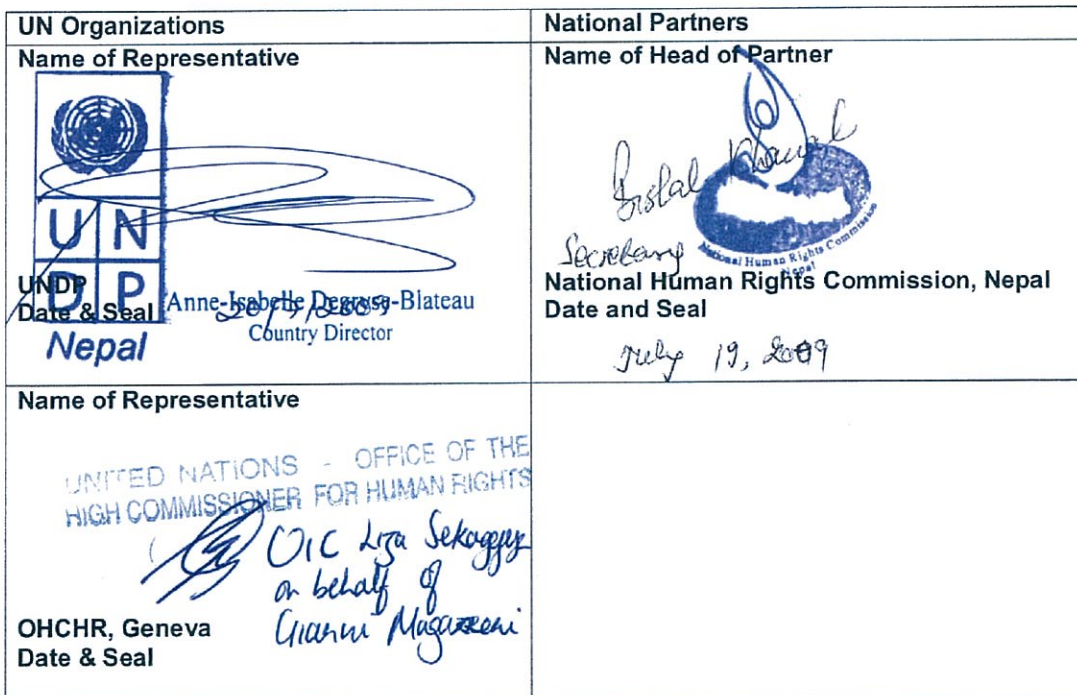 UN Organizations
Name of Representative
UN
DP
UNDP
Date & Seal
Anne-Isabelle Degryse-Blateau
Country Director
Nepal
National Partners
Name of Head of Partner
Khanal
Secretary
National Human Rights Commission
Nepal
National Human Rights Commission, Nepal
Date and Seal
July 19, 2009
Name of Representative
UNITED NATIONS - OFFICE OF THE
HIGH COMMISSIONER FOR HUMAN RIGHTS
OIC Liza Sekaggya
on behalf of
Gianni Magazzeni
OHCHR, Geneva
Date & Seal